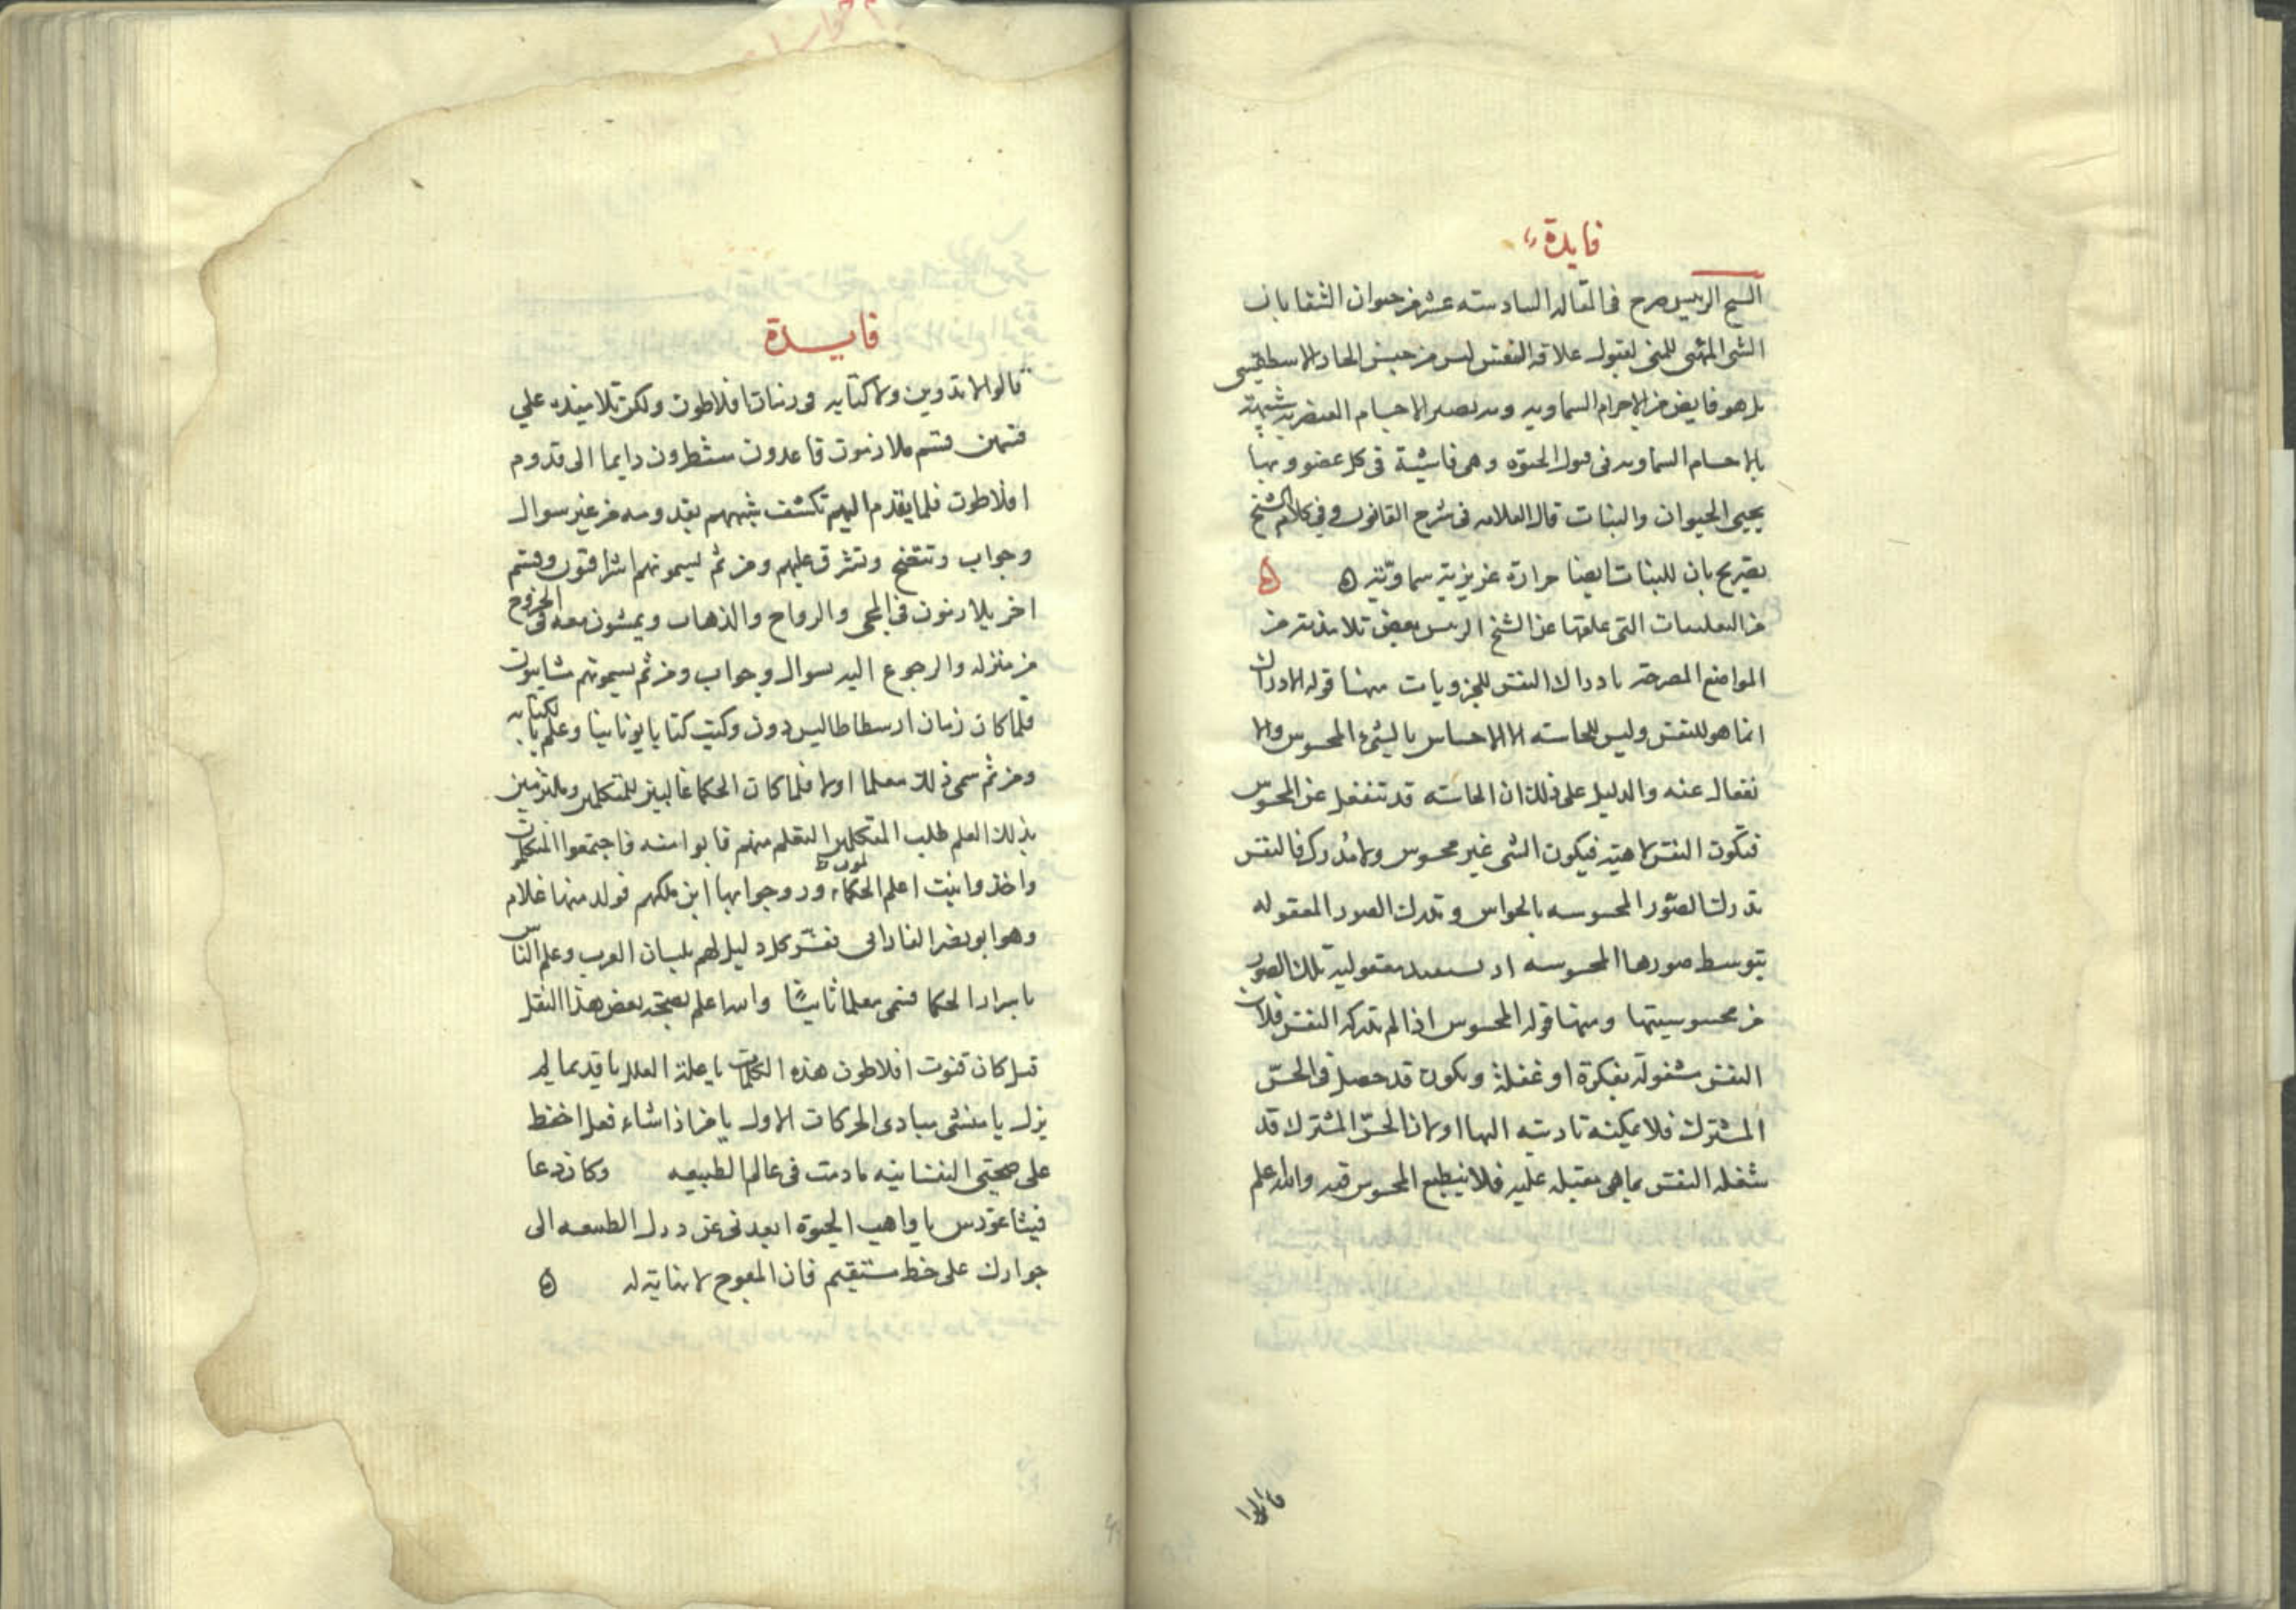 فايدة
الشيخ الرييس صرح فى المقاله السادسته عشر من حيوان الشفا بان
الشى المهيى للمنى لقبول علاقه النفس ليس من جنس الحار الاسطقسى
بل هو فايض من الاجرام السماويه وبه تصير الاجسام العنصريه شبيهة
بالاجسام السماويه فى قبول الحيوة وهى فاشية فى كل عضو وبها
يحيى الحيوان والنبات قال العلامه فى شرح القانون وفى كلام الشيخ
تصريح بان للنبات ايضا حرارة غريزية سماوية ه ه
من التعليقات التى علقها عن الشيخ الرييس بعض تلامذته من
المواضع المصرحة بادراك النفس للجزويات منها قوله الادراك
انما هو للنفس وليس للحاسته الا الاحساس بالشىء المحسوس والا
نفعال عنه والدليل على ذلك ان الحاسته قد تنفعل عن المحسوس
فتكون النفس لاهية فيكون الشى غير محسوس ولا مدرك فالنفس
تدرك الصور المحسوسه بالحواس وتدرك الصور المعقوله
بتوسط صورها المحسوسه اذ تستفيد معقولية تلك الصور
من محسوسيتها ومنها قوله المحسوس اذا لم تدركه النفس فلان
النفس مشغولة بفكرة او غفلة ويكون قد حصل فى الحس
المشترك فلا يمكنه تاديته اليها او لان الحس المشترك قد
شغله النفس بما هى مقبله عليه فلا ينطبع المحسوس فيه والله اعلم
قالوا
فايدة
قالوا لا تدوين ولا كتابه فى زمان افلاطون ولكن تلاميذه على
قسمين قسم ملازمون قاعدون منتظرون دايما الى قدوم
افلاطون فلما يقدم اليهم تكشف شبههم بقدومه من غير سوال
وجواب وتتضح وتشرق عليهم ومن ثم يسمونهم اشراقيون وقسم
اخر يلازمون فى المجى والرواح والذهاب ويمشون معه فى الخروج
من منزله والرجوع اليه بسوال وجواب ومن ثم يسمونهم مشاييون
فلما كان زمان ارسطاطاليس دون وكتب كتابا يونانيا وعلم بالكتابه
ومن ثم سمى ذلك معلما اولا فلما كان الحكما غالبين للمتكلمين وملزمين
بذلك العلم طلب المتكلمين التعلم منهم فابوا منه فاجتمعوا المتكلمون
واخذوا بنت اعلم الحكماء وزوجوا بها ابن ملكهم فولد منها غلام
وهو ابو نصر الفارابى ففسر كل دليل لهم بلسان العرب وعلم الناس
باسرار الحكما فسمى معلما ثانيا والله اعلم بصحة بعض هذا النقل
قيل كان قنوت افلاطون هذه الكلمات يا علة العلل يا قديما لم
يزل يا منشى مبادى الحركات الاول يا من اذا شاء فعل احفظ
على صحتى النفسانيه ما دمت فى عالم الطبيعه وكان دعا
فيثاغورس يا واهب الحيوة ابعدنى عن درك الطبيعه الى
جوارك على خط مستقيم فان المعوج لا نهاية له ه